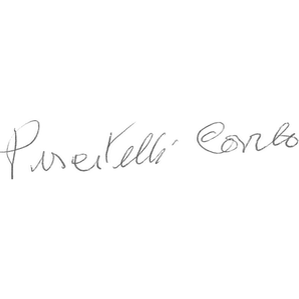 Puscitelli Carlo